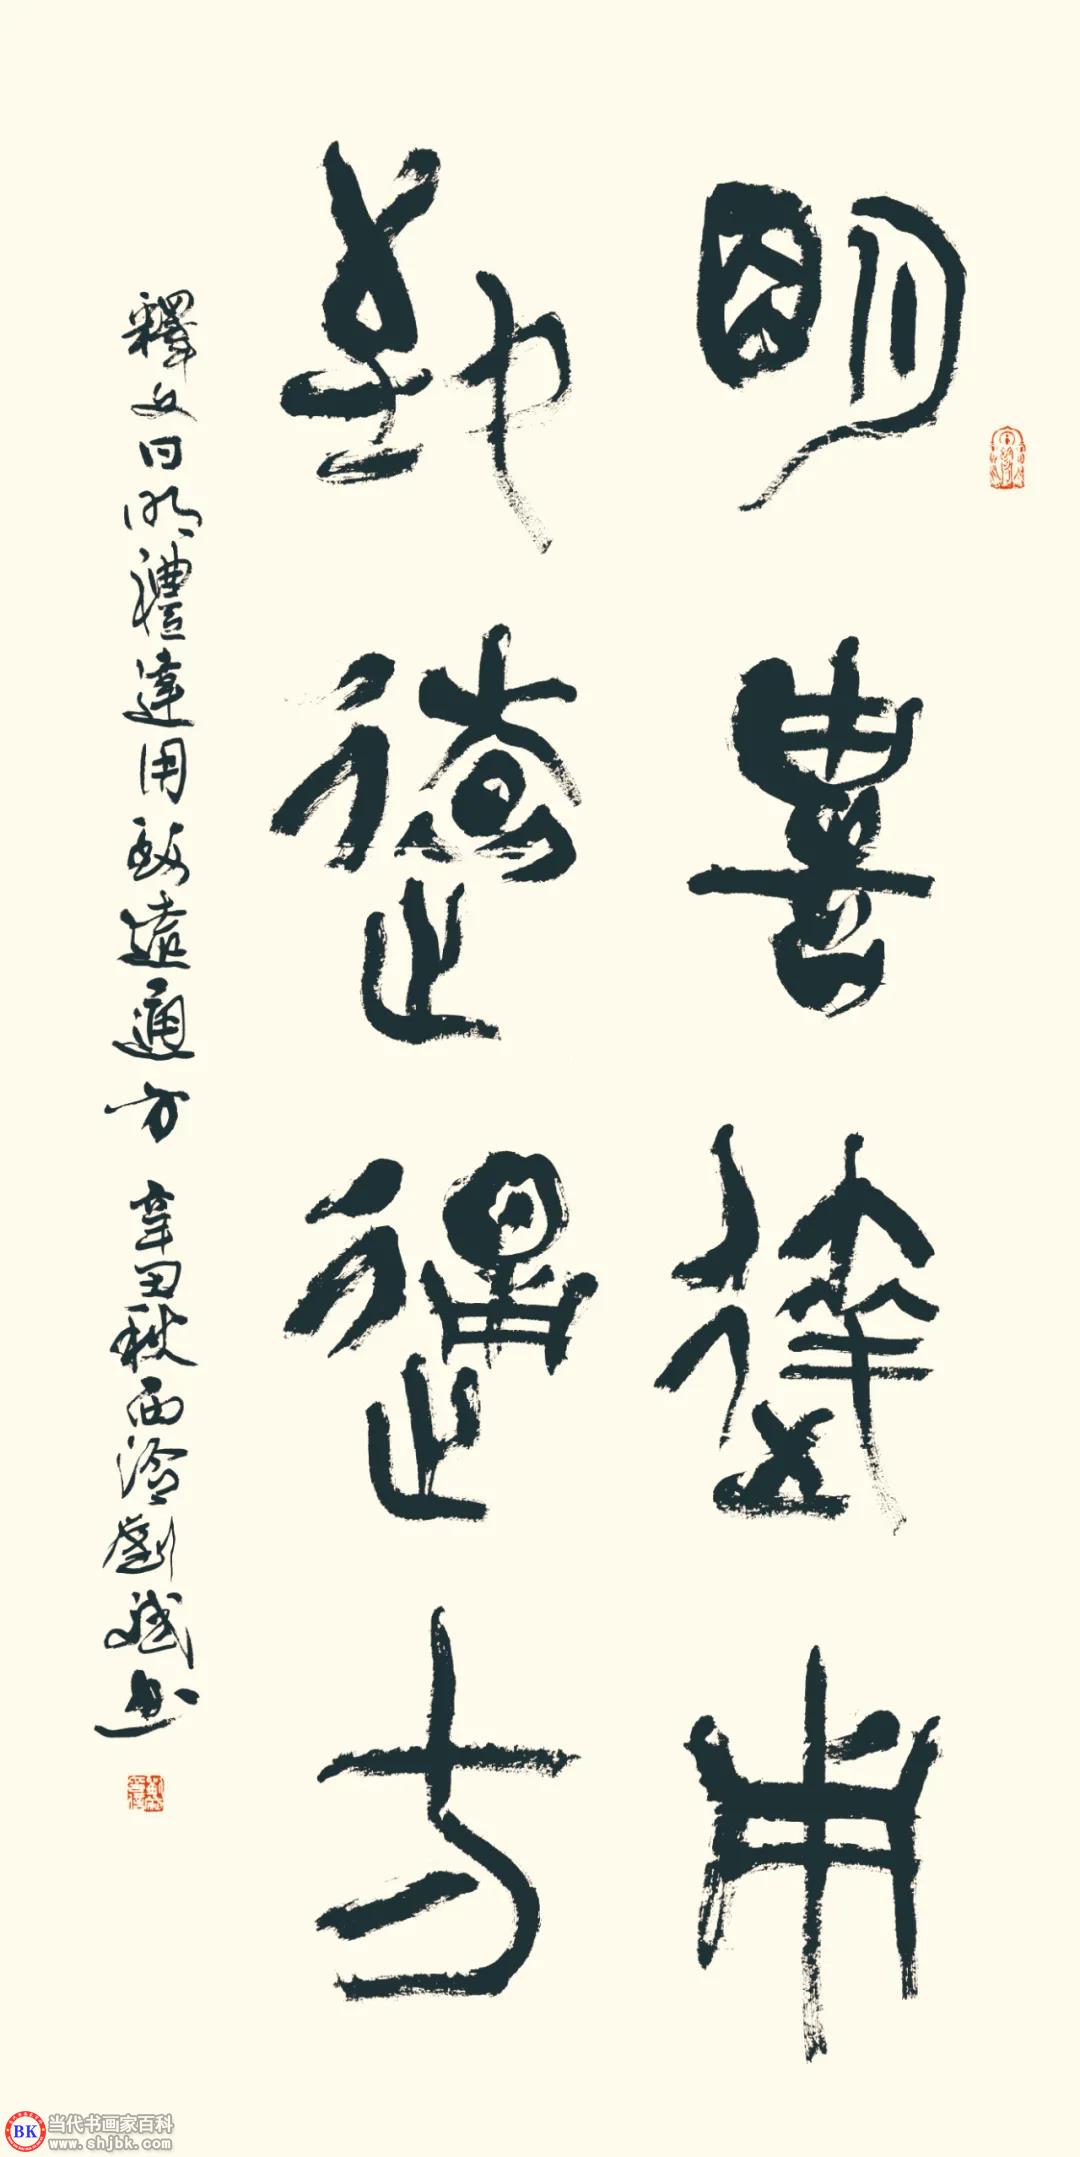 明豊達用
致遠遇方
釋文曰明禮達用致遠通方 辛丑秋西泠劉斌書
BK 当代书画家百科
www.shjbk.com